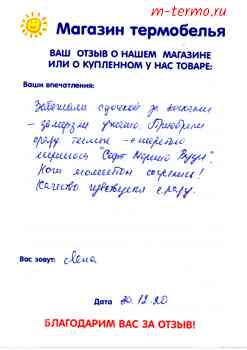 m-termo.ru
Магазин термобелья
ВАШ ОТЗЫВ О НАШЕМ МАГАЗИНЕ
ИЛИ О КУПЛЕННОМ У НАС ТОВАРЕ:
Ваши впечатления:
Забежали с дочкой за носками
- замерзли ужасно. Приобрели
сразу теплые - с шерстью
мериноса "Софт Мерино Вуул".
Ноги моментом согрелись!
Качество чувствуется сразу.
Вас зовут: Лена
Дата 20.12.20
БЛАГОДАРИМ ВАС ЗА ОТЗЫВ!